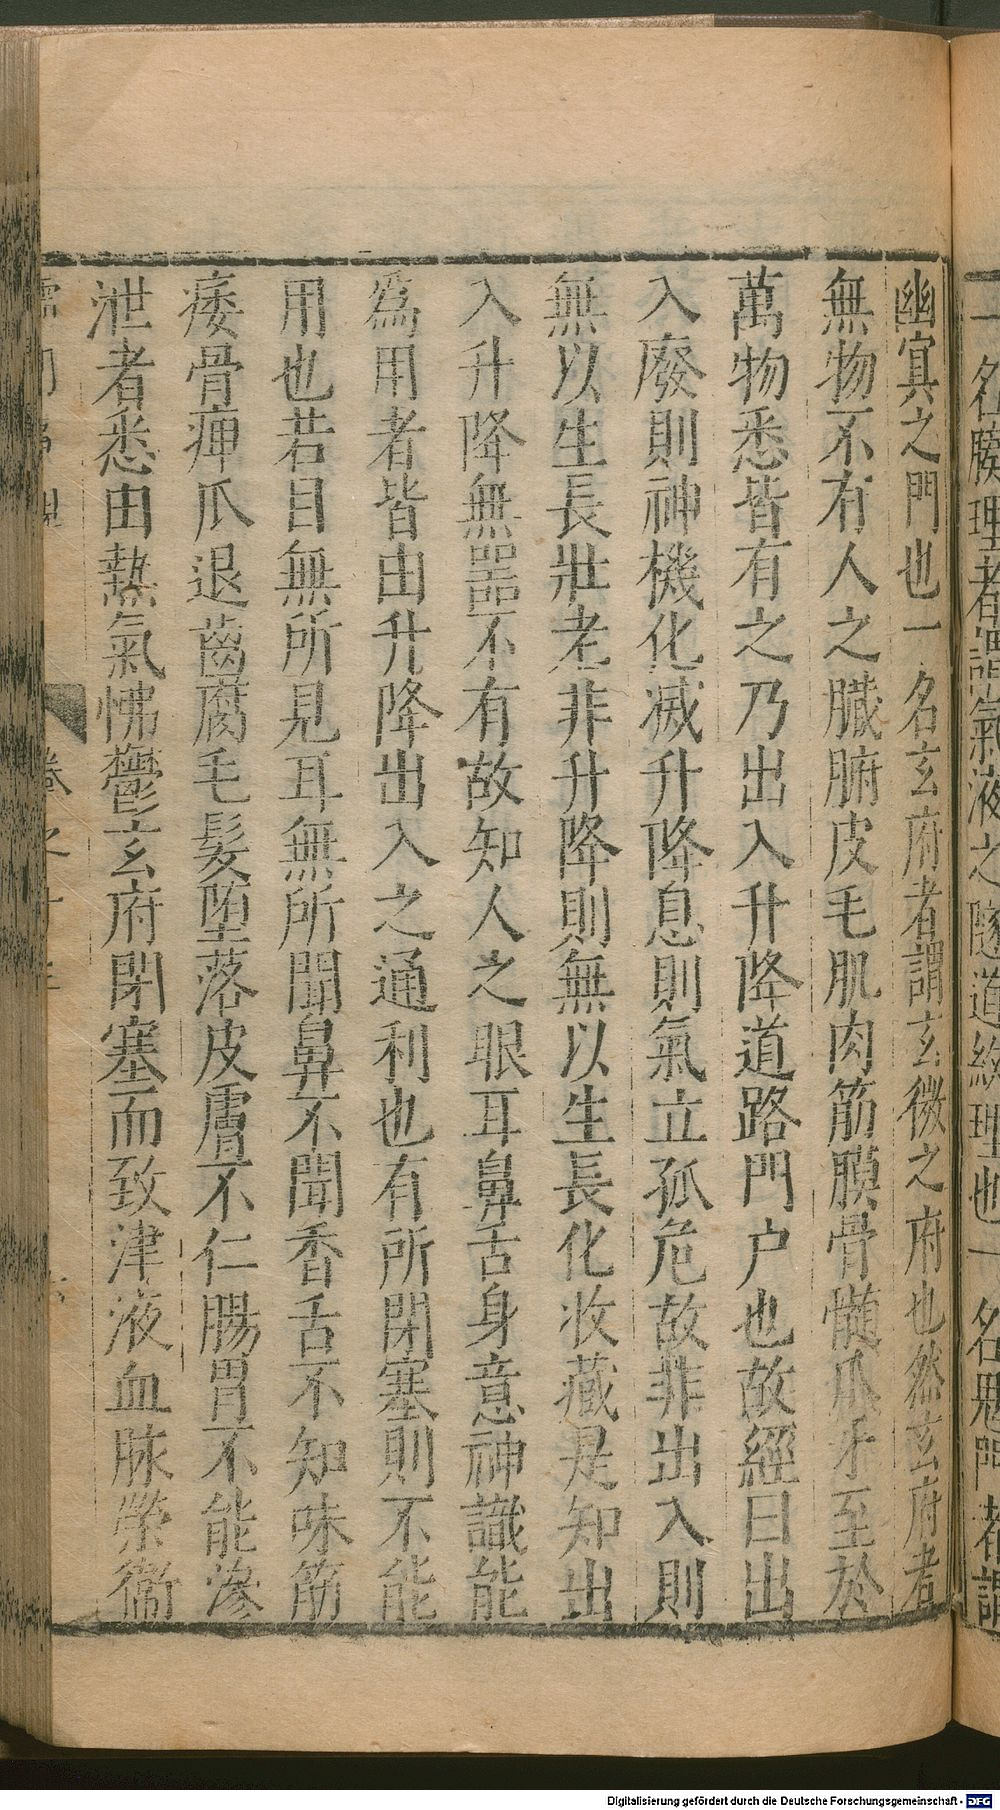 一名腠理者謂氣液之隧道紋理也一名鬼門者謂
幽冥之門也一名玄府者謂玄微之府也然玄府者
無物不有人之臟腑皮毛肌肉筋膜骨髓爪牙至於
萬物悉皆有之乃出入升降道路門户也故經曰出
入廢則神機化滅升降息則氣立孤危故非出入則
無以生長壯老非升降則無以生長化收藏是知出
入升降無噐不有故知人之眼耳鼻舌身意神識能
爲用者皆由升降出入之通利也有所閉塞則不能
用也若目無所見耳無所聞鼻不聞香舌不知味筋
痿骨痺爪退齒腐毛髮堕落皮膚不仁腸胃不能滲
泄者悉由熱氣怫鬱玄府閉塞而致津液血脉榮衞
卷之十
Digitalisierung gefördert durch die Deutsche Forschungsgemeinschaft - DFG